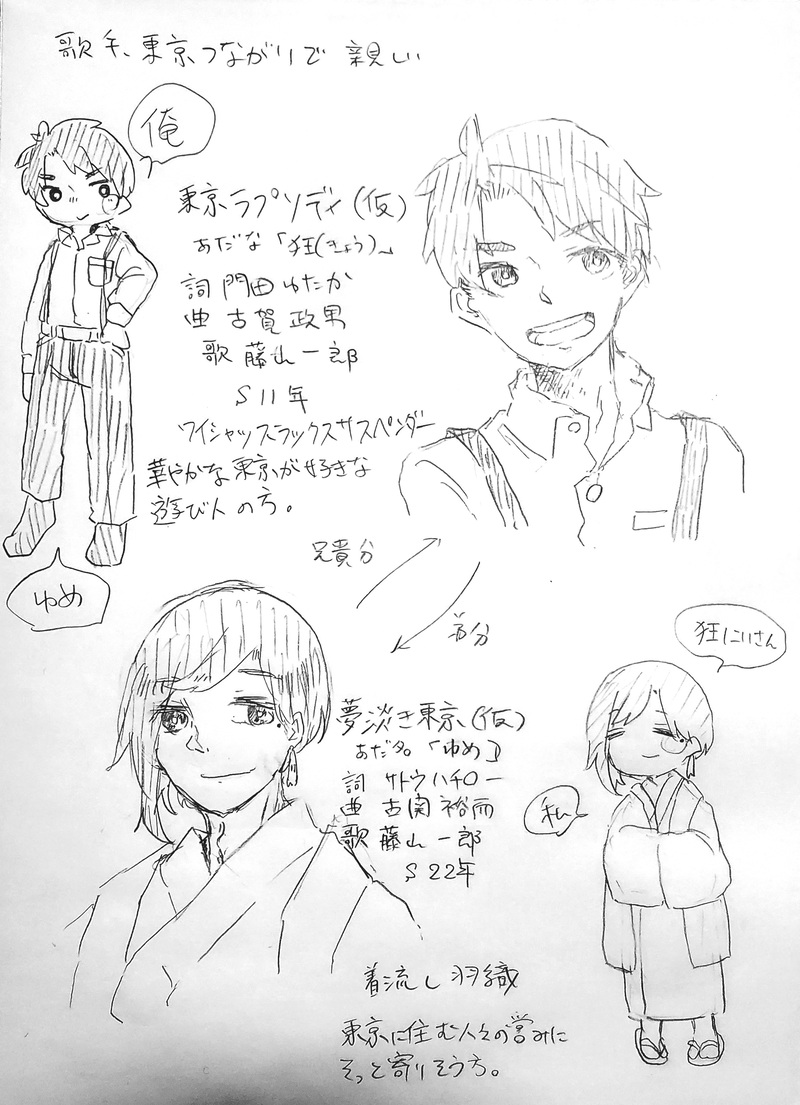 歌手、東京つながりで 親しい
俺
東京ラプソディ(仮)
あだな「狂(きょう)」
詞 門田ゆたか
曲 古賀政男
歌 藤山一郎
S11年
ワイシャツスラックスサスペンダー
華やかな東京が好きな
遊び人の方。
ゆめ
兄貴分
弟分
狂にいさん
夢淡き東京(仮)
あだ名「ゆめ」
詞 サトウハチロー
曲 古関裕而
歌 藤山一郎
S22年
私
着流し羽織
東京に住む人々の営みに
そっと寄りそう方。